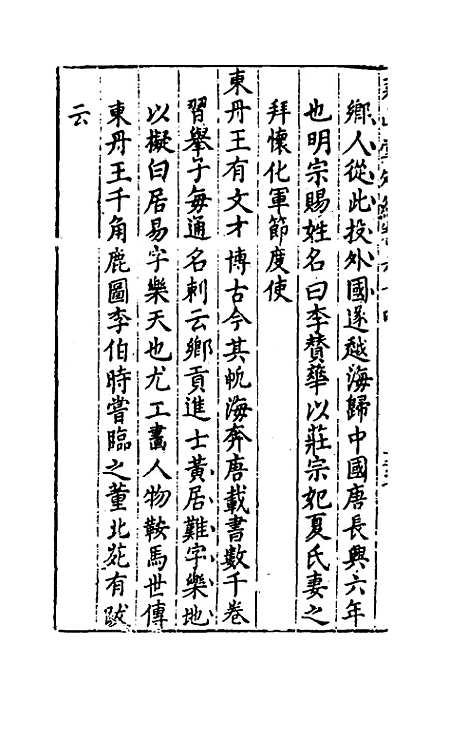 鄉人從此投外國遂越海歸中國唐長興六年
也明宗賜姓名曰李賛華以莊宗妃夏氏妻之
拜懷化軍節度使
東丹王有文才博古今其帆海奔唐載書數千卷
習舉子每通名刺云鄉貢進士黃居難字樂地
以擬白居易字樂天也尤工畫人物鞍馬世傳
東丹王千角鹿圖李伯時嘗臨之董北苑有跋
云